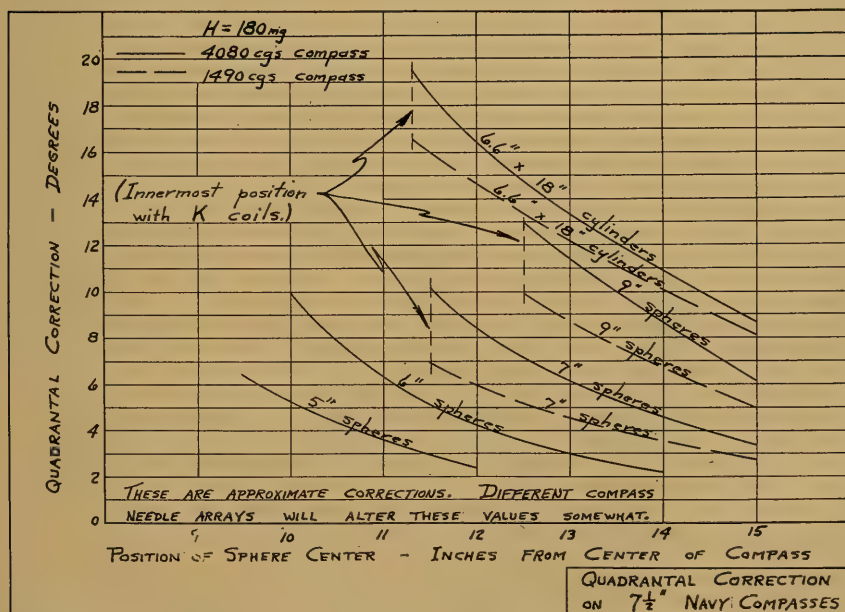 H = 180 mg
4080 cgs compass
1490 cgs compass
20
18
16
14
12
10
8
6
4
2
0
QUADRANTAL CORRECTION — DEGREES
(Innermost position
with K coils.)
6.6" x 18" cylinders
6.6" x 18" cylinders
9" spheres
9" spheres
7" spheres
7" spheres
6" spheres
5" spheres
THESE ARE APPROXIMATE CORRECTIONS. DIFFERENT COMPASS
NEEDLE ARRAYS WILL ALTER THESE VALUES SOMEWHAT.
9 10 11 12 13 14 15
POSITION OF SPHERE CENTER - INCHES FROM CENTER OF COMPASS
QUADRANTAL CORRECTION
ON 7½" NAVY COMPASSES